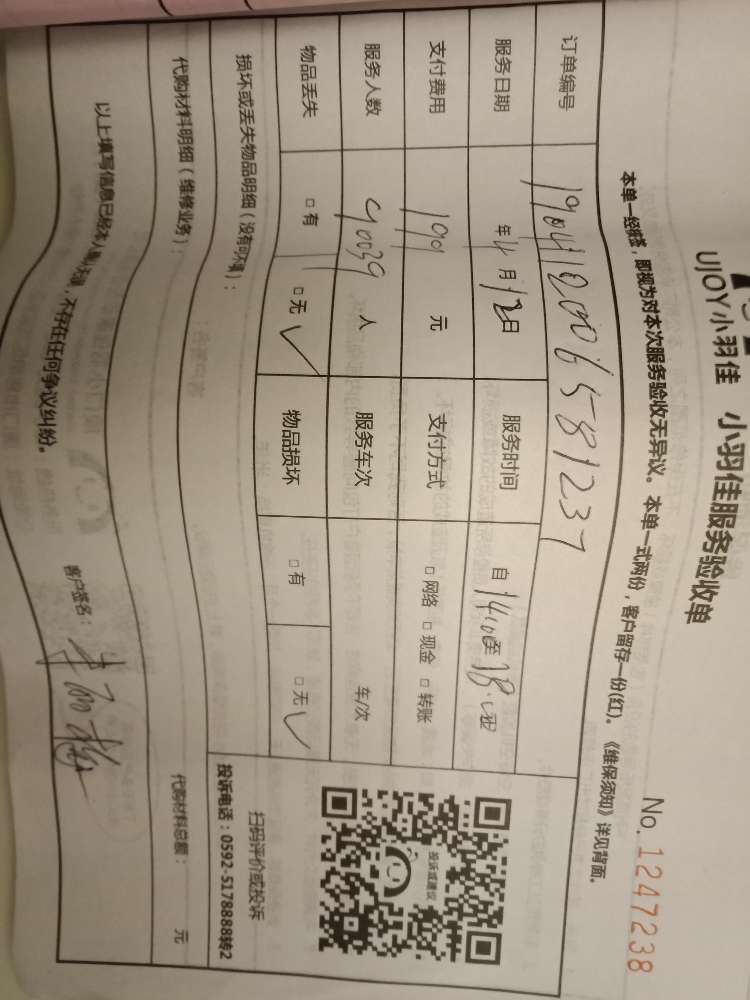 UJOY小羽佳 小羽佳服务验收单
No. 1247238
本单一经拼签，即视为对本次服务验收无异议。本单一式两份，客户留存一份(红)。《维保须知》详见背面。
订单编号 190412006581237
服务日期 年4月12日 服务时间 自14:00至18:00
支付费用 190 元 支付方式 □网络 □现金 □转账
服务人数 90039 人 服务车次 车/次
物品丢失 □有 □无✓ 物品损坏 □有 □无✓
损坏或丢失物品明细（没有可不填）：
代购材料明细（维修业务）： 代购材料总额： 元
以上填写信息已经本人确认无误，不存在任何争议纠纷。 客户签名：
投诉或建议
扫码评价或投诉
投诉电话：0592-5178888转2